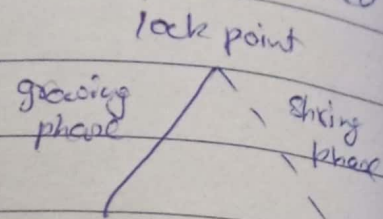 lock point
growing
phase
Shring
phase